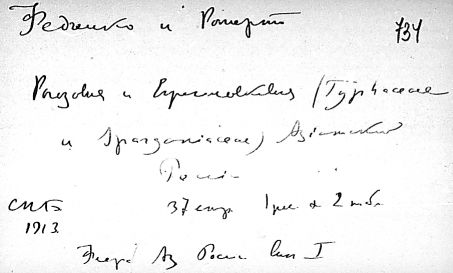 Федченко и Роперт 734
Рогозовыя и Ежеголовковыя (Typhaceae
и Sparganiaceae) Азиатской
России
СПБ 37 стр 1 рис & 2 табл
1913.
Флора Аз Росси вып I